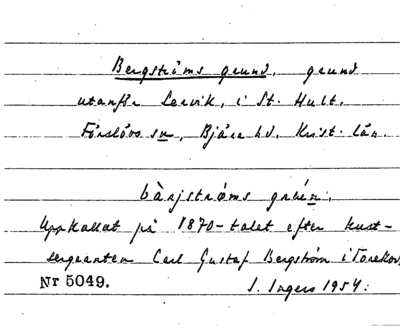 Bergströms grund, grund
utanför Lervik, i St. Hult,
Förslövs sn, Bjäre hd, Krist. län.
bàrjstrøms grɯ́n:,
Uppkallat på 1870-talet efter kust-
sergeanten Carl Gustaf Bergström i Torekov.
Nr 5049.
I. Ingers 1954.